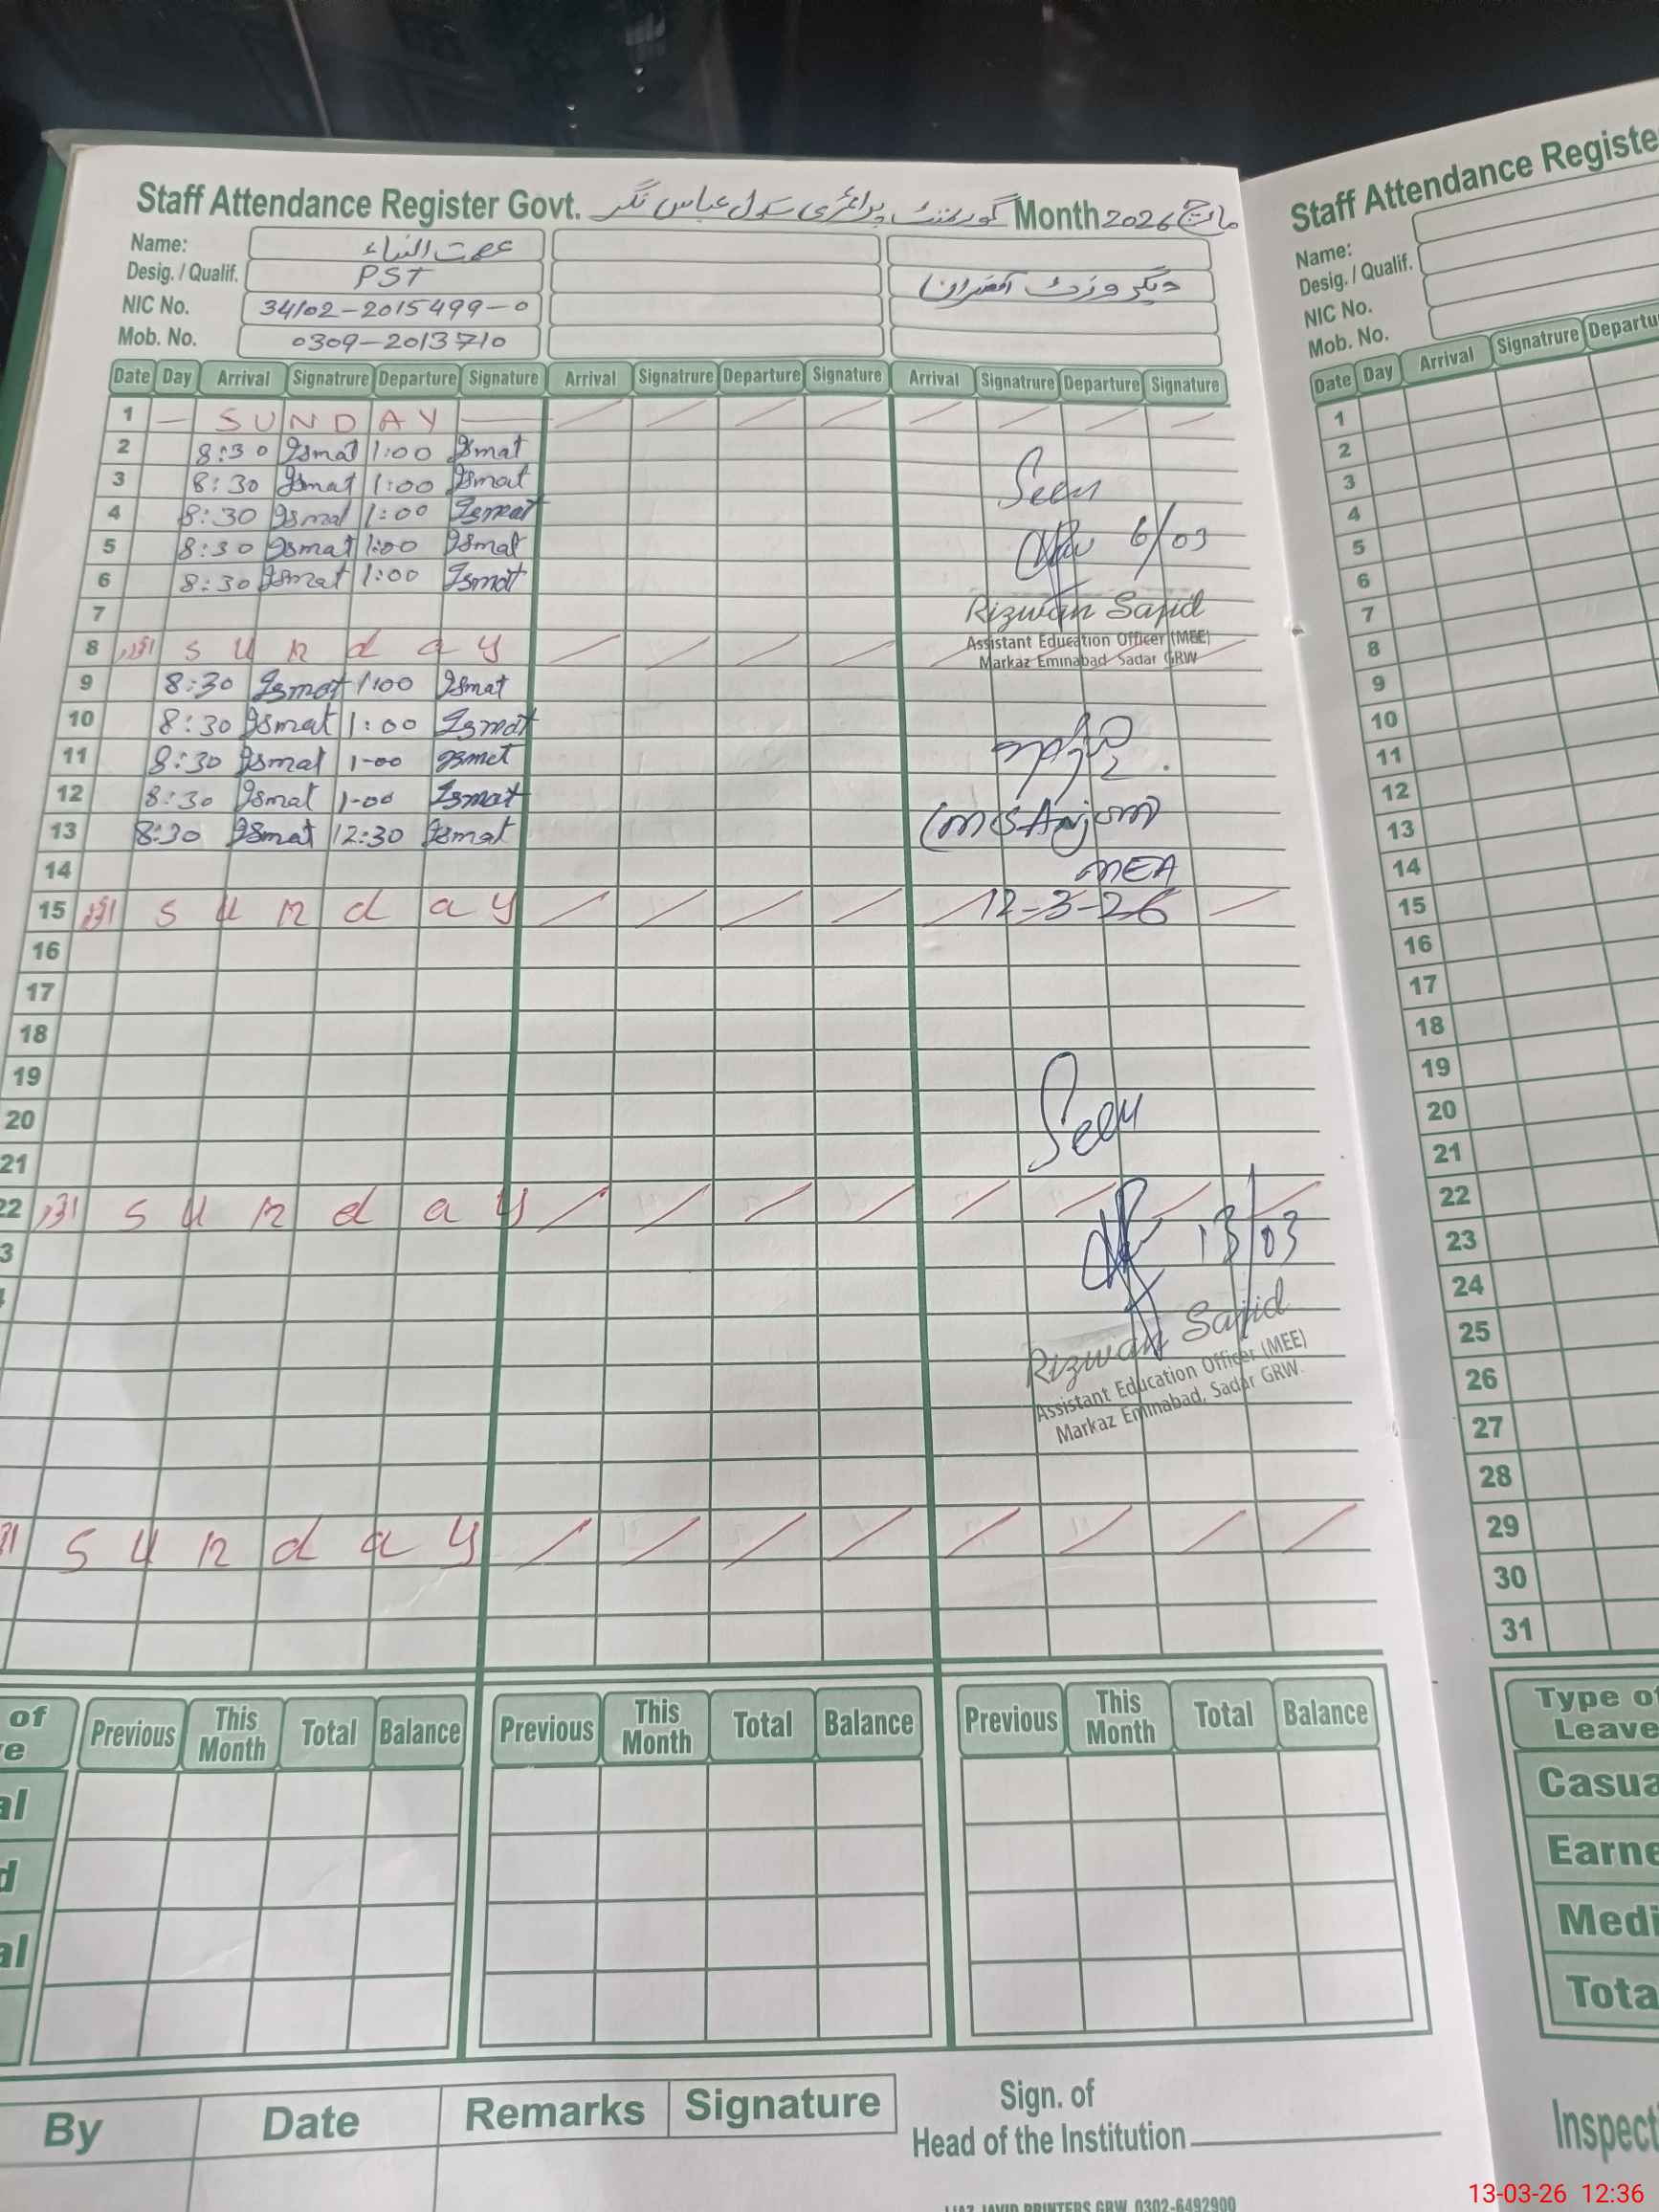 Staff Attendance Register Govt. گورنمنٹ پرائمری سکول عباس نگر Month مارچ 2026
Name: عصمت النساء
Desig. / Qualif. PST دیگر وزٹ آفسران
NIC No. 34102-2015499-0
Mob. No. 0309-2013710
Date Day Arrival Signatrure Departure Signature Arrival Signatrure Departure Signature Arrival Signatrure Departure Signature
1 — SUNDAY —
2 8:30 Ismat 1:00 Ismat
3 8:30 Ismat 1:00 Ismat
4 8:30 Ismat 1:00 Ismat
5 8:30 Ismat 1:00 Ismat
6 8:30 Ismat 1:00 Ismat
7
8 اتوار sunday
9 8:30 Ismat 1:00 Ismat
10 8:30 Ismat 1:00 Ismat
11 8:30 Ismat 1-00 Ismat
12 8:30 Ismat 1-00 Ismat
13 8:30 Ismat 12:30 Ismat
14
15 اتوار sunday
16
17
18
19
20
21
22 اتوار sunday
3
sunday
Seen
6/03
Rizwan Sajid
Assistant Education Officer (MEE)
Markaz Eminabad Sadar GRW
MEA
12-3-26
Seen
13/03
Rizwan Sajid
Assistant Education Officer (MEE)
Markaz Eminabad, Sadar GRW.
of
Previous This Month Total Balance Previous This Month Total Balance Previous This Month Total Balance
By Date Remarks Signature
Sign. of
Head of the Institution
PRINTERS GRW. 0302-6492900
Staff Attendance Registe
Name:
Desig. / Qualif.
NIC No.
Mob. No.
Date Day Arrival Signatrure Departu
1
2
3
4
5
6
7
8
9
10
11
12
13
14
15
16
17
18
19
20
21
22
23
24
25
26
27
28
29
30
31
Type of
Leave
Casua
Earne
Medi
Tota
Inspect
13-03-26 12:36